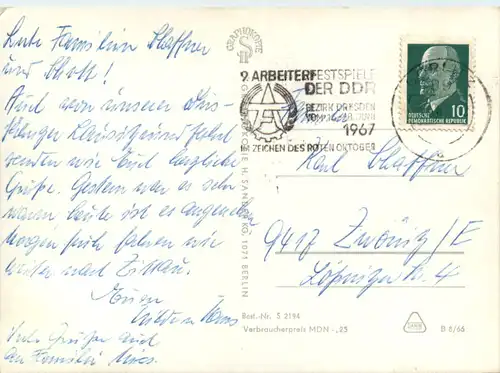 Liebe Familien Schaffner
und Schott!
Auch von unserer dies-
jährigen Lausitzrundfahrt
senden wir Euch herzliche
Grüße. Gestern war es sehr
warm heute ist es angenehm
Morgen früh fahren wir
weiter nach Zittau.
Eure
Hans
Viele Grüße auch
an Familie
GRAPHOKOPIE
H. SANDER KG, 1071 BERLIN
9. ARBEITERFESTSPIELE
DER DDR
BEZIRK DRESDEN
1967
IM ZEICHEN DES ROTEN OKTOBER
10
DEUTSCHE
DEMOKRATISCHE REPUBLIK
Familie
Karl Schaffner
9417 Zwönitz/E
Lößnitzer Str. 4
Best.-Nr. S 2194
Verbraucherpreis MDN -,25
B 8/66